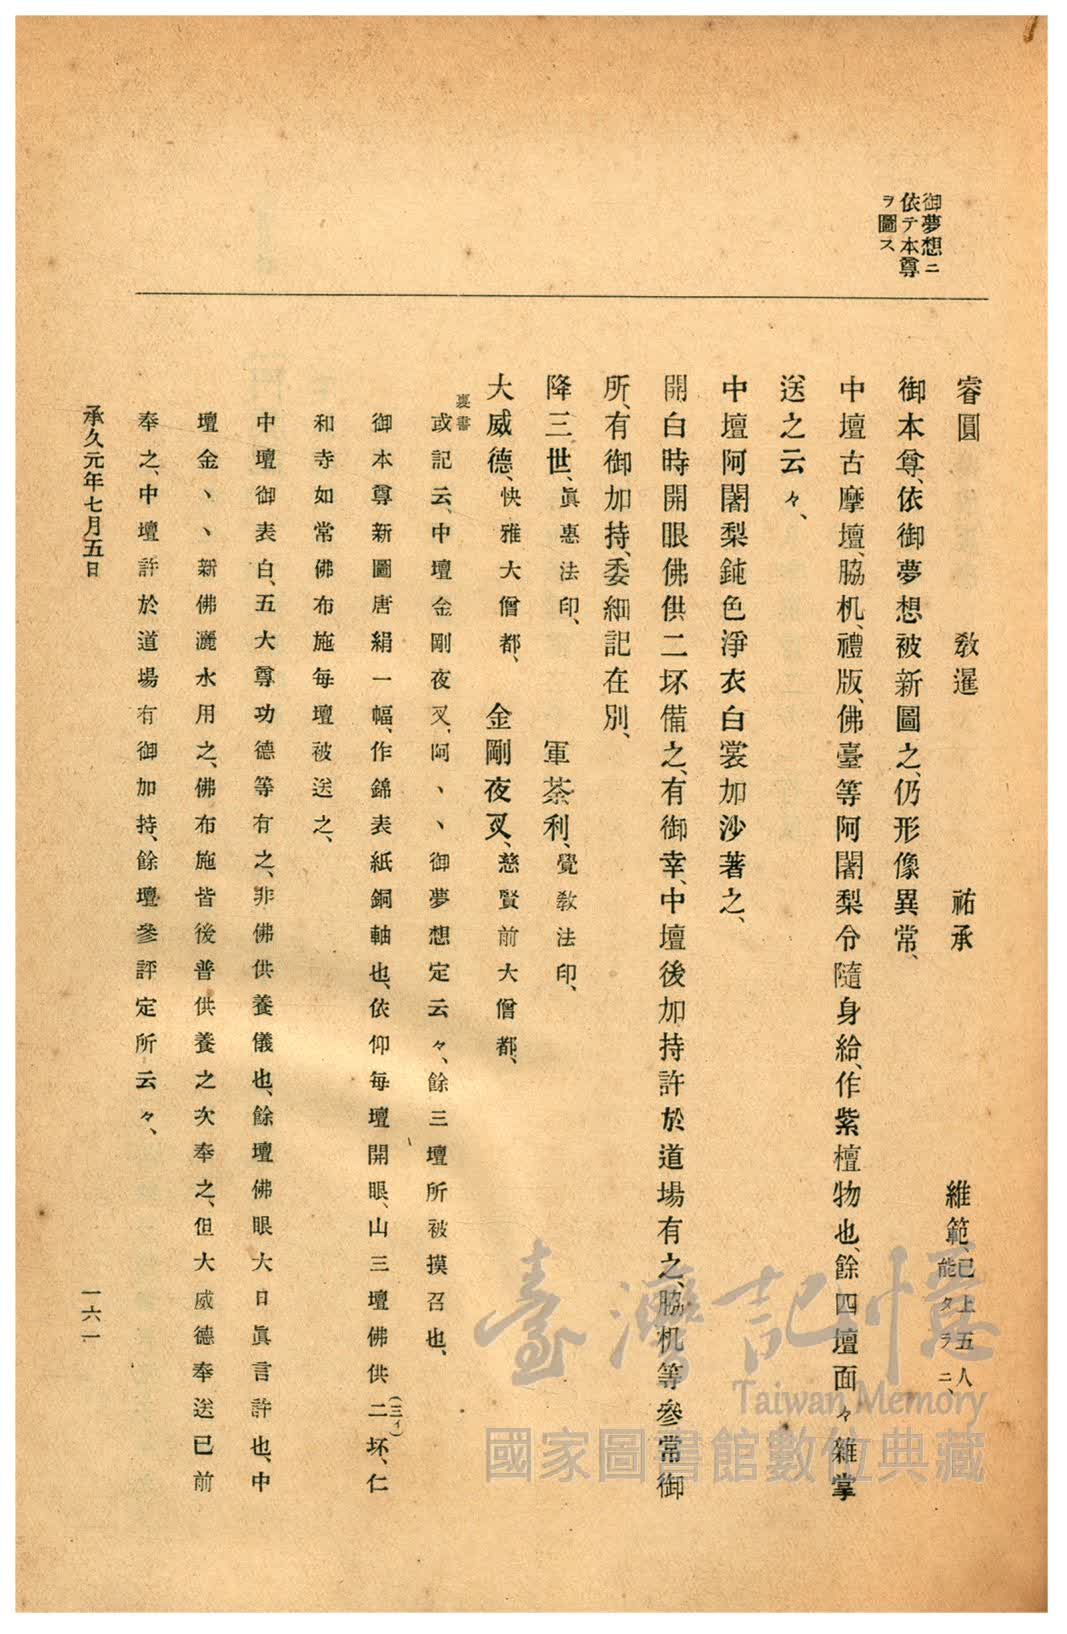 御夢想ニ
依テ本尊
ヲ圖ス
睿圓　教暹　祐承　維範、已上五人
能タラニ、
御本尊、依御夢想被新圖之、仍形像異常、
中壇古摩壇、脇机、禮版、佛臺等阿闍梨令隨身給、作紫檀物也、餘四壇面々雜掌
送之云々、
中壇阿闍梨鈍色淨衣白裳加沙著之、
開白時開眼佛供二坏備之、有御幸、中壇後加持許於道場有之、脇机等參常御
所、有御加持、委細記在別、
降三世、眞惠法印、　軍荼利、覺教法印、
大威德、快雅大僧都、　金剛夜叉、慈賢前大僧都、
裏書
或記云、中壇金剛夜叉、阿、、御夢想定云々、餘三壇所被摸召也、
御本尊新圖唐絹一幅、作錦表紙銅軸也、依仰每壇開眼、山三壇佛供二坏、仁
（三イ）
和寺如常佛布施每壇被送之、
中壇御表白、五大尊功德等有之、非佛供養儀也、餘壇佛眼大日眞言許也、中
壇金、、新佛灑水用之、佛布施皆後普供養之次奉之、但大威德奉送已前
奉之、中壇許於道場有御加持、餘壇參評定所云々、
承久元年七月五日
一六一
臺灣記憶
Taiwan Memory
國家圖書館數位典藏